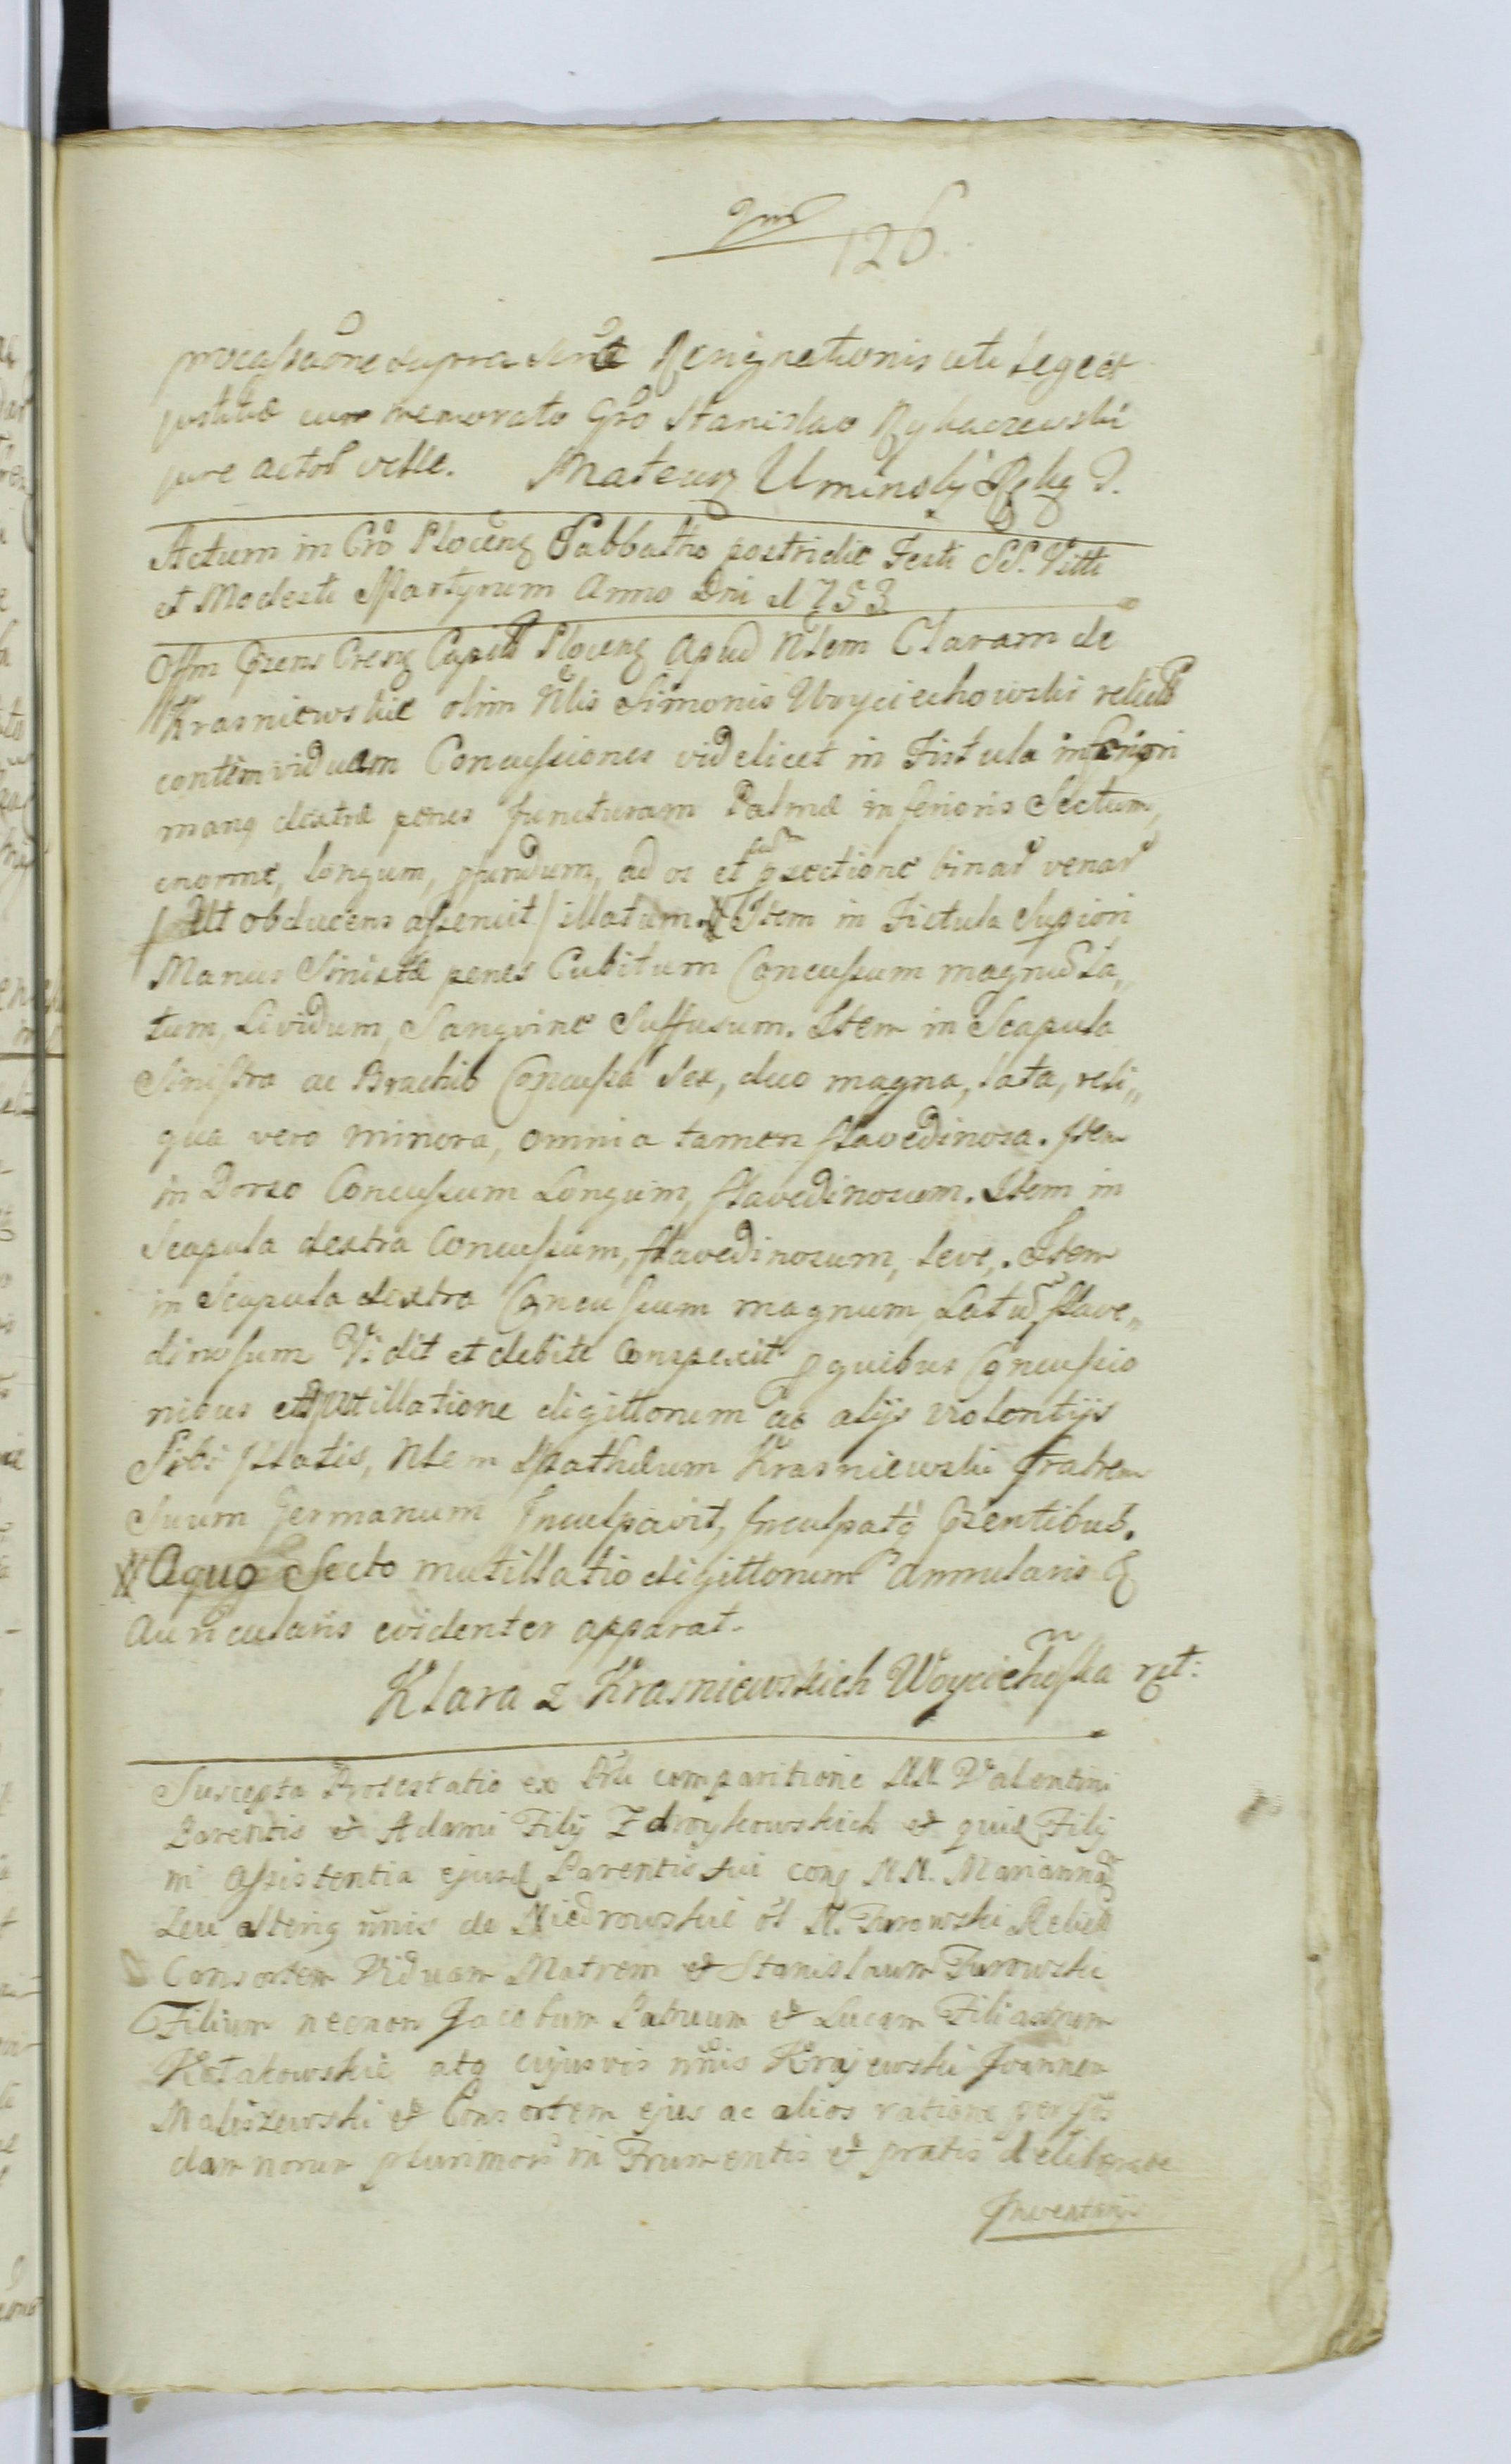 126.
supra Resignationis uti Legee
cum memorato Gso Stanislao Rykaczewski
jure velle. Mateusz Uminsky
Actum in Cro Plocens Sabbatho postridie Festi SS. Vitti
et Modesti Martyrum Anno Dni 1753
Offm Cpit Plocens Apud Nlem Claram de
Krasniewskie olim Nlis Simonis Woyciechowski relict
contem viduam Concussiones videlicet in Fistula inferiori
dextræ penes Juncturam Palmæ inferioris Sectum,
enorme, longum, pfundum, ad os et cum psectione binar venar
Ut obducens asseruit / illatum. Item in Fistula Supiori
Manus Sinistræ penes Cubitum Concussum magnu La„
tum, Lividum, Sangvine Suffusum. Item in Scapula
Sinistra ac Brachio Concussa Sex, duo magna, lata, reli„
qua vero minora, omnia tamen flavedinosa. Item
in Dorso Concussum Longum, flavedinosum. Item in
Scapula dextra Concussum, flavedinosum, leve,. Item
in Scapula dextra Concussum magnum, Latu, flave„
dinosum Vidit et debite Conspexit p quibus Concussio
nibus et mutillatione digittorum ac alijs violentijs
Sibi illatis, Nlem Mathæum Krasniewski fratrem
Suum Germanum Inculpavit, Inculpatq pzentibus.
Aquo Secto mutillatio digittorum Annularis &
Auricularis evidenter apparat.
Klara z Krasniewskich Woyciehoska
Suscepta Protestatio ex comparitione NN. Valentini
Parentis et Adami Filij Zdroykowskich et Filij
in Assistentia ejusd Parentis sui NN. Mariannam
Seu alterius nnis de Niedrowskie ol N. Turowski
Consortem Viduam Matrem et Stanislaum Turowski
Filium necnon Jacobum Patruum et Lucam Filiastrum
Kotakowskie atq cujusvis nnis Krajewski Joannem
Maliszewski et Consortem ejus ac alios ratione
damnorum plurimor in Frumentis et pratis deliberate
Inventarijs